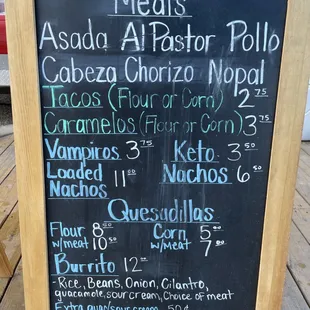 Meats
Asada Al Pastor Pollo
Cabeza Chorizo Nopal
Tacos (Flour or Corn) 2 75
Caramelos (Flour or Corn) 3 75
Vampiros 3 75 Keto 3 50
Loaded Nachos 11 00 Nachos 6 50
Quesadillas
Flour 8 50 Corn 5 00
w/meat 10 50 w/meat 7 00
Burrito 12 00
- Rice, Beans, Onion, Cilantro,
guacamole, sour cream, Choice of meat
Extra guac/sour cream 50¢